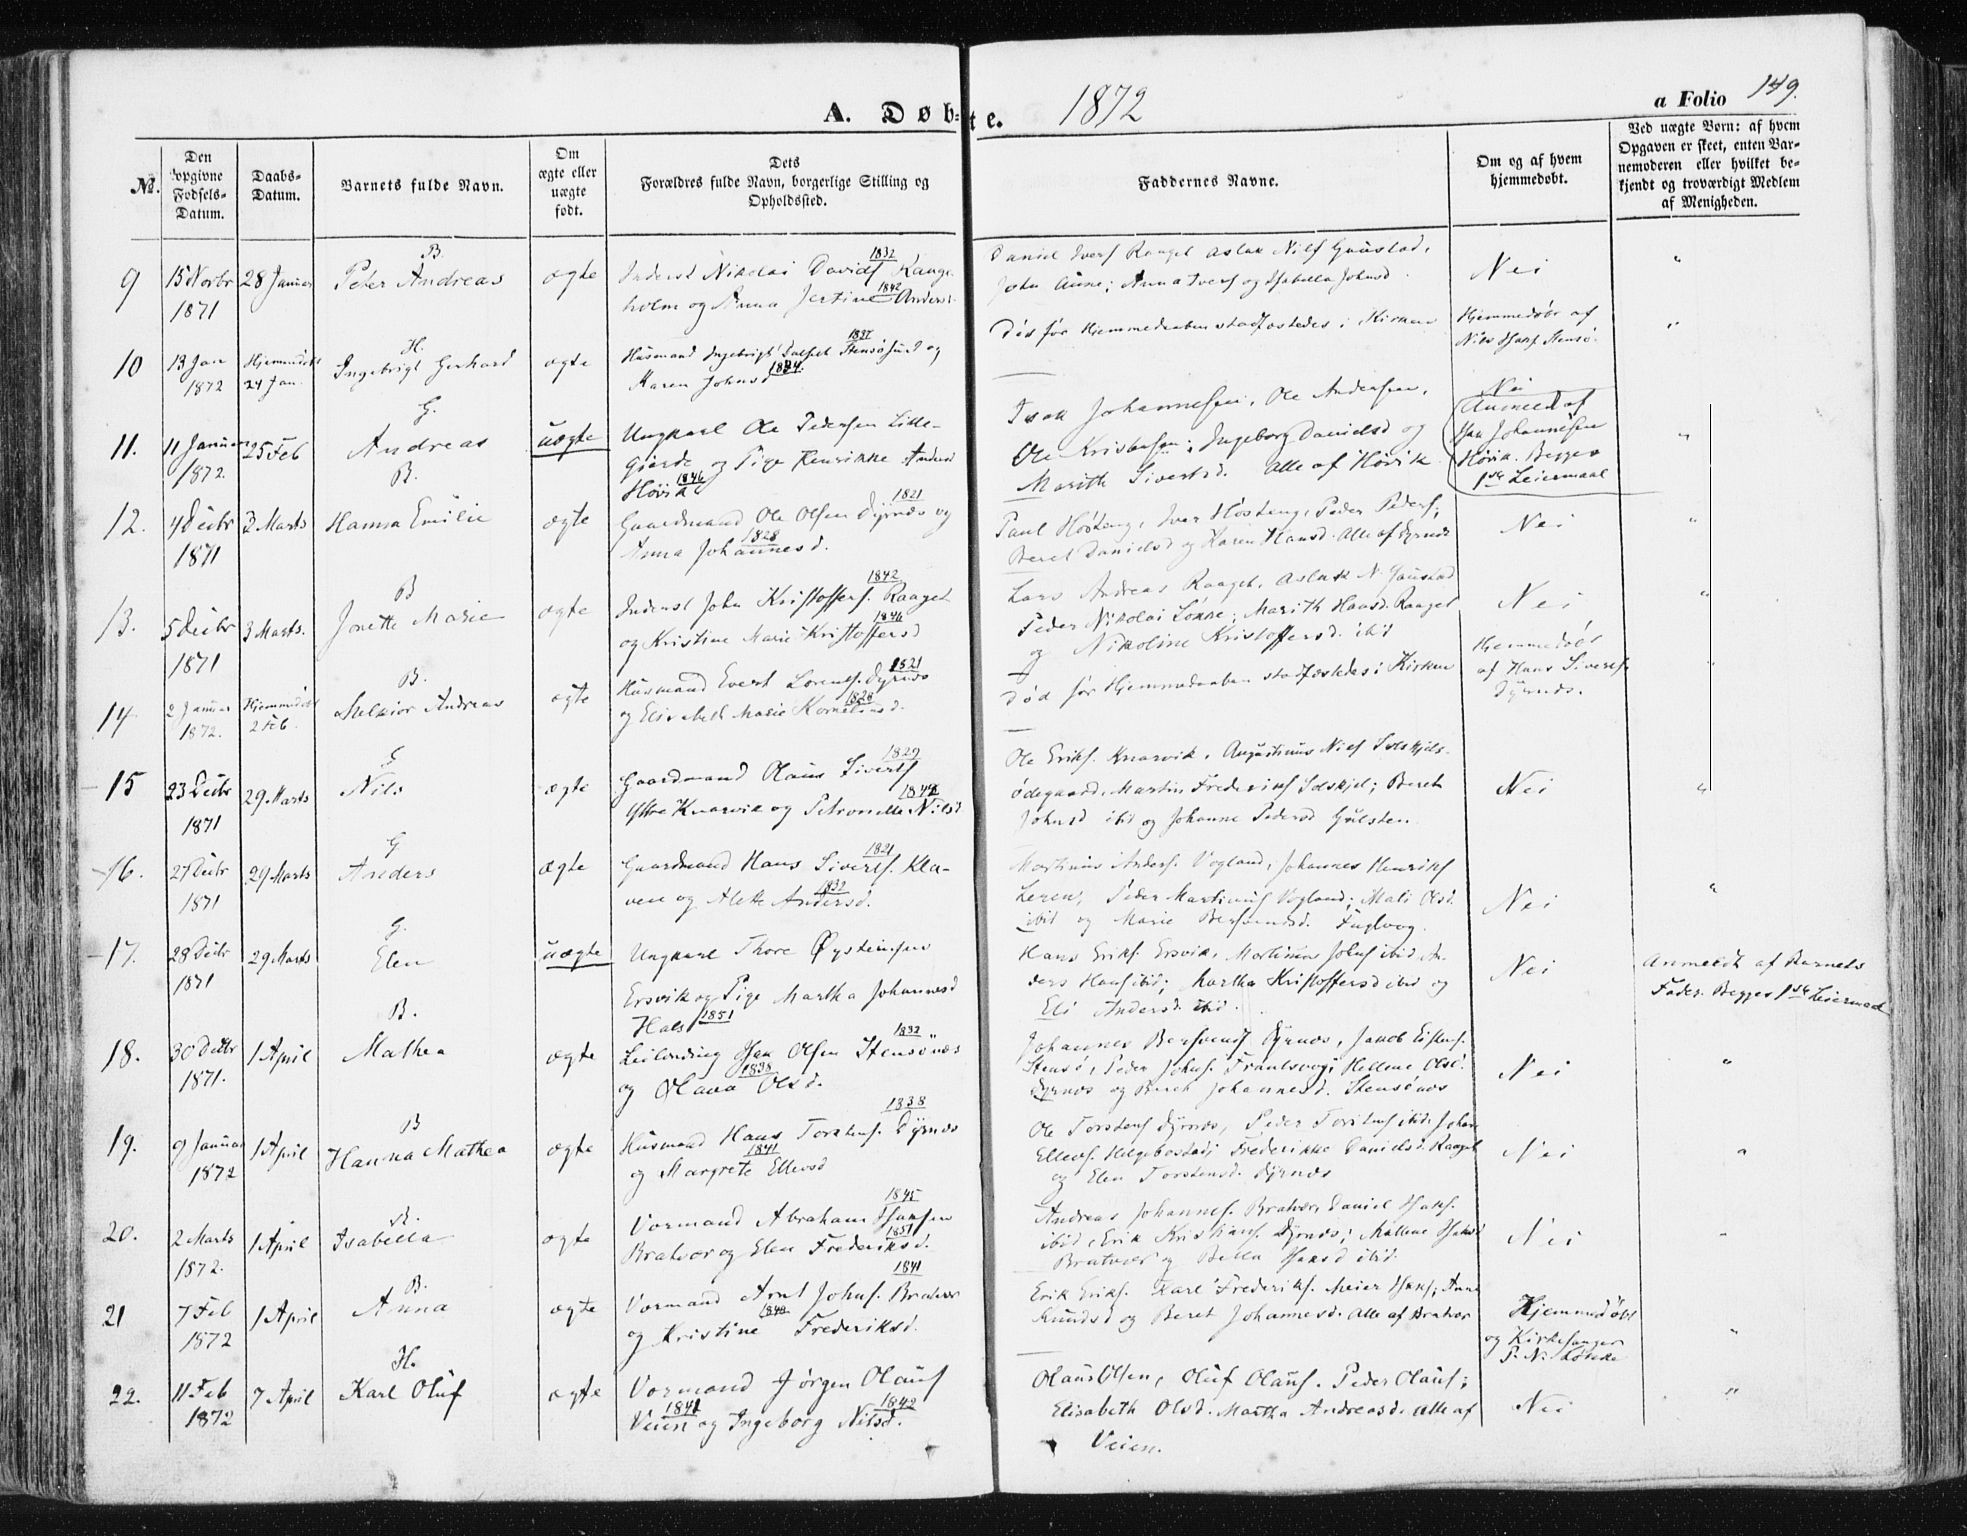 A. Døb-te. 1872
a Folio 149.
No.
Den opgivne Fødsels-Datum.
Daabs-Datum.
Barnets fulde Navn.
Om ægte eller uægte født.
Dets Forældres fulde Navn, borgerlige Stilling og Opholdssted.
Faddernes Navne.
Om og af hvem hjemmedøbt.
Ved uægte Børn: af hvem Opgaven er skeet, enten Barnemoderen eller hvilket bekjendt og troværdigt Medlem af Menigheden.
9 15 Novbr 1871 28 Januar B. Peter Andreas ægte
Inderst Nikolai Davids. 1832 Raage-
holm og Anna Jertine 1842 Andersd.
Daniel Ivers Raaget Aslak Nils Gaustad,
John Aune; Anna Ivers og Isabella Johnsd.
Nei "
10 13 Jan 1872 Hjemmedøbt 24 Jan. H. Ingebrigt Gerhard ægte
Husmand Ingebrigt 1837 Stensøsund og
Karen Johnsd 1834.
Død før Hjemmedaaben stadfæstedes i Kirken
Hjemmedøbt af
Nils Isaks. Stensø. "
11. 11 Januar 1872. 25 Feb G. Andreas uægte
Ungkarl Ole Pedersen Lille-
Gjerde og Pige Henrikke Andersd
Høvik 1846
Isak Johannesen, Ole Andersen,
Ole Kristensen; Ingeborg Danielsd og
Marith Sivertsd. Alle af Høvik
Nei
Anmeldt af
Isak Johannesen
Høvik. Begges
1ste Leiermaal "
12. 4 Decbr 1871 3 Marts B. Hanna Emilie ægte
Gaardmand Ole Olsen 1821 Dyrnæs og
Anna Johannesd. 1828
Paul Høsteng, Iver Høsteng, Peder Peders;
Beret Danielsd og Karen Hansd. Alle af Dyrnæs
Nei "
13. 5 Decbr 1871 3 Marts. B Jonette Marie ægte
Inderst John Kristoffers. 1842 Raaget
og Kristine Marie Kristoffersd 1846
Lars Andreas Raaget, Aslak N. Gaustad
Peder Nikolai Lønne; Marith Hansd. Raaget
og Nikoline Kristoffersd. ibid
Nei "
14 2 Januar 1872. Hjemmedøbt 2 Feb. B. Melkior Andreas ægte
Husmand Evert Lorents. Dyrnæs 1821
og Elisabeth Marie Korneliusd. 1828
Død før Hjemmedaaben stadfæstedes i Kirken
Hjemmedøbt
af Hans Siverts.
Dyrnæs. "
15 23 Decbr 1871 29 Marts G Nils ægte
Gaardmand Olaus Siverts 1829
Ytre Knarvik og Petronelle Nilsd 1842
Ole Eriks. Knarvik, Augustinus Niels Solskjels-
ødegaard, Martin Frederiks Solskjel; Beret
Johnsd ibid og Johanne Pedersd Gulsten.
Nei "
16. 27 Decbr 1871 29 Marts G Anders ægte
Gaardmand Hans Siverts. 1821 Kla-
ven og Alette Andersd. 1832
Martinus Anders. Vogland, Johannes Henriks
Leren, Peder Martinus Vogland; Mali Olsd.
ibid og Marie Bersvendsd. Fuglvog.
Nei "
17. 28 Decbr 1871 29 Marts G. Elen uægte
Ungkarl Thore Øysteinsen
Ersvik og Pige Martha Johannesd
Hals 1851
Hans Eriks. Ersvik, Martinus Johns ibid An-
ders Hans ibid; Martha Kristoffersd ibid og
Eli Andersd. ibid.
Nei
Anmeldt af Barnets
Fader. Begges 1ste Leiermaal
18. 30 Decbr 1871. 1 April B. Mathea ægte
Leilending Isak Olsen 1832 Stensønæs
og Olava Olsd. 1838
Johannes Bersvends Dyrnæs, Jakob
Stensø, Peder Johns. Frantsvog; Hellene Olsd.
Dyrnæs og Beret Johannesd. Stensønæs
Nei "
19. 9 Januar 1872 1 April B Hanna Mathea ægte
Husmand Hans Torstens. 1838 Dyrnæs
og Margrete Ellevsd 1841
Ole Torstens Dyrnæs, Peder Torstens ibid. Johan
Ellevs. Helgebostad; Frederikke Danielsd. Raaget
og Elen Torstensd. Dyrnæs
Nei "
20. 2 Marts 1872. 1 April B. Isabella ægte
Vormand Abraham Isaksen 1845
Bratvær og Elen Frederiksd. 1851
Andreas Johannes. Bratvær, Daniel Isaks.
ibid, Erik Kristians Dyrnæs; Mallene Isaksd
Bratvær og Bella Isaksd ibid.
Nei "
21 7 Feb 1872 1 April B. Anna ægte
Vormand Arnt Johns. 1841 Bratvær
og Kristine Frederiksd. 1840
Erik Eriks. Karl Frederiks. Meier Isaks; Anne
Knudsd og Beret Johannesd. Alle af Bratvær
Hjemmedøbt
og Kirkesanger
P. N. "
22. 11 Feb 1872 7 April H. Karl Oluf ægte
Vormand Jørgen Olaus
Veien 1841 og Ingeborg Nilsd. 1842
Olaus Olsen, Oluf Olaus. Peder Olaus;
Elisabeth Olsd. Martha Andreasd. Alle af
Veien.
Nei "